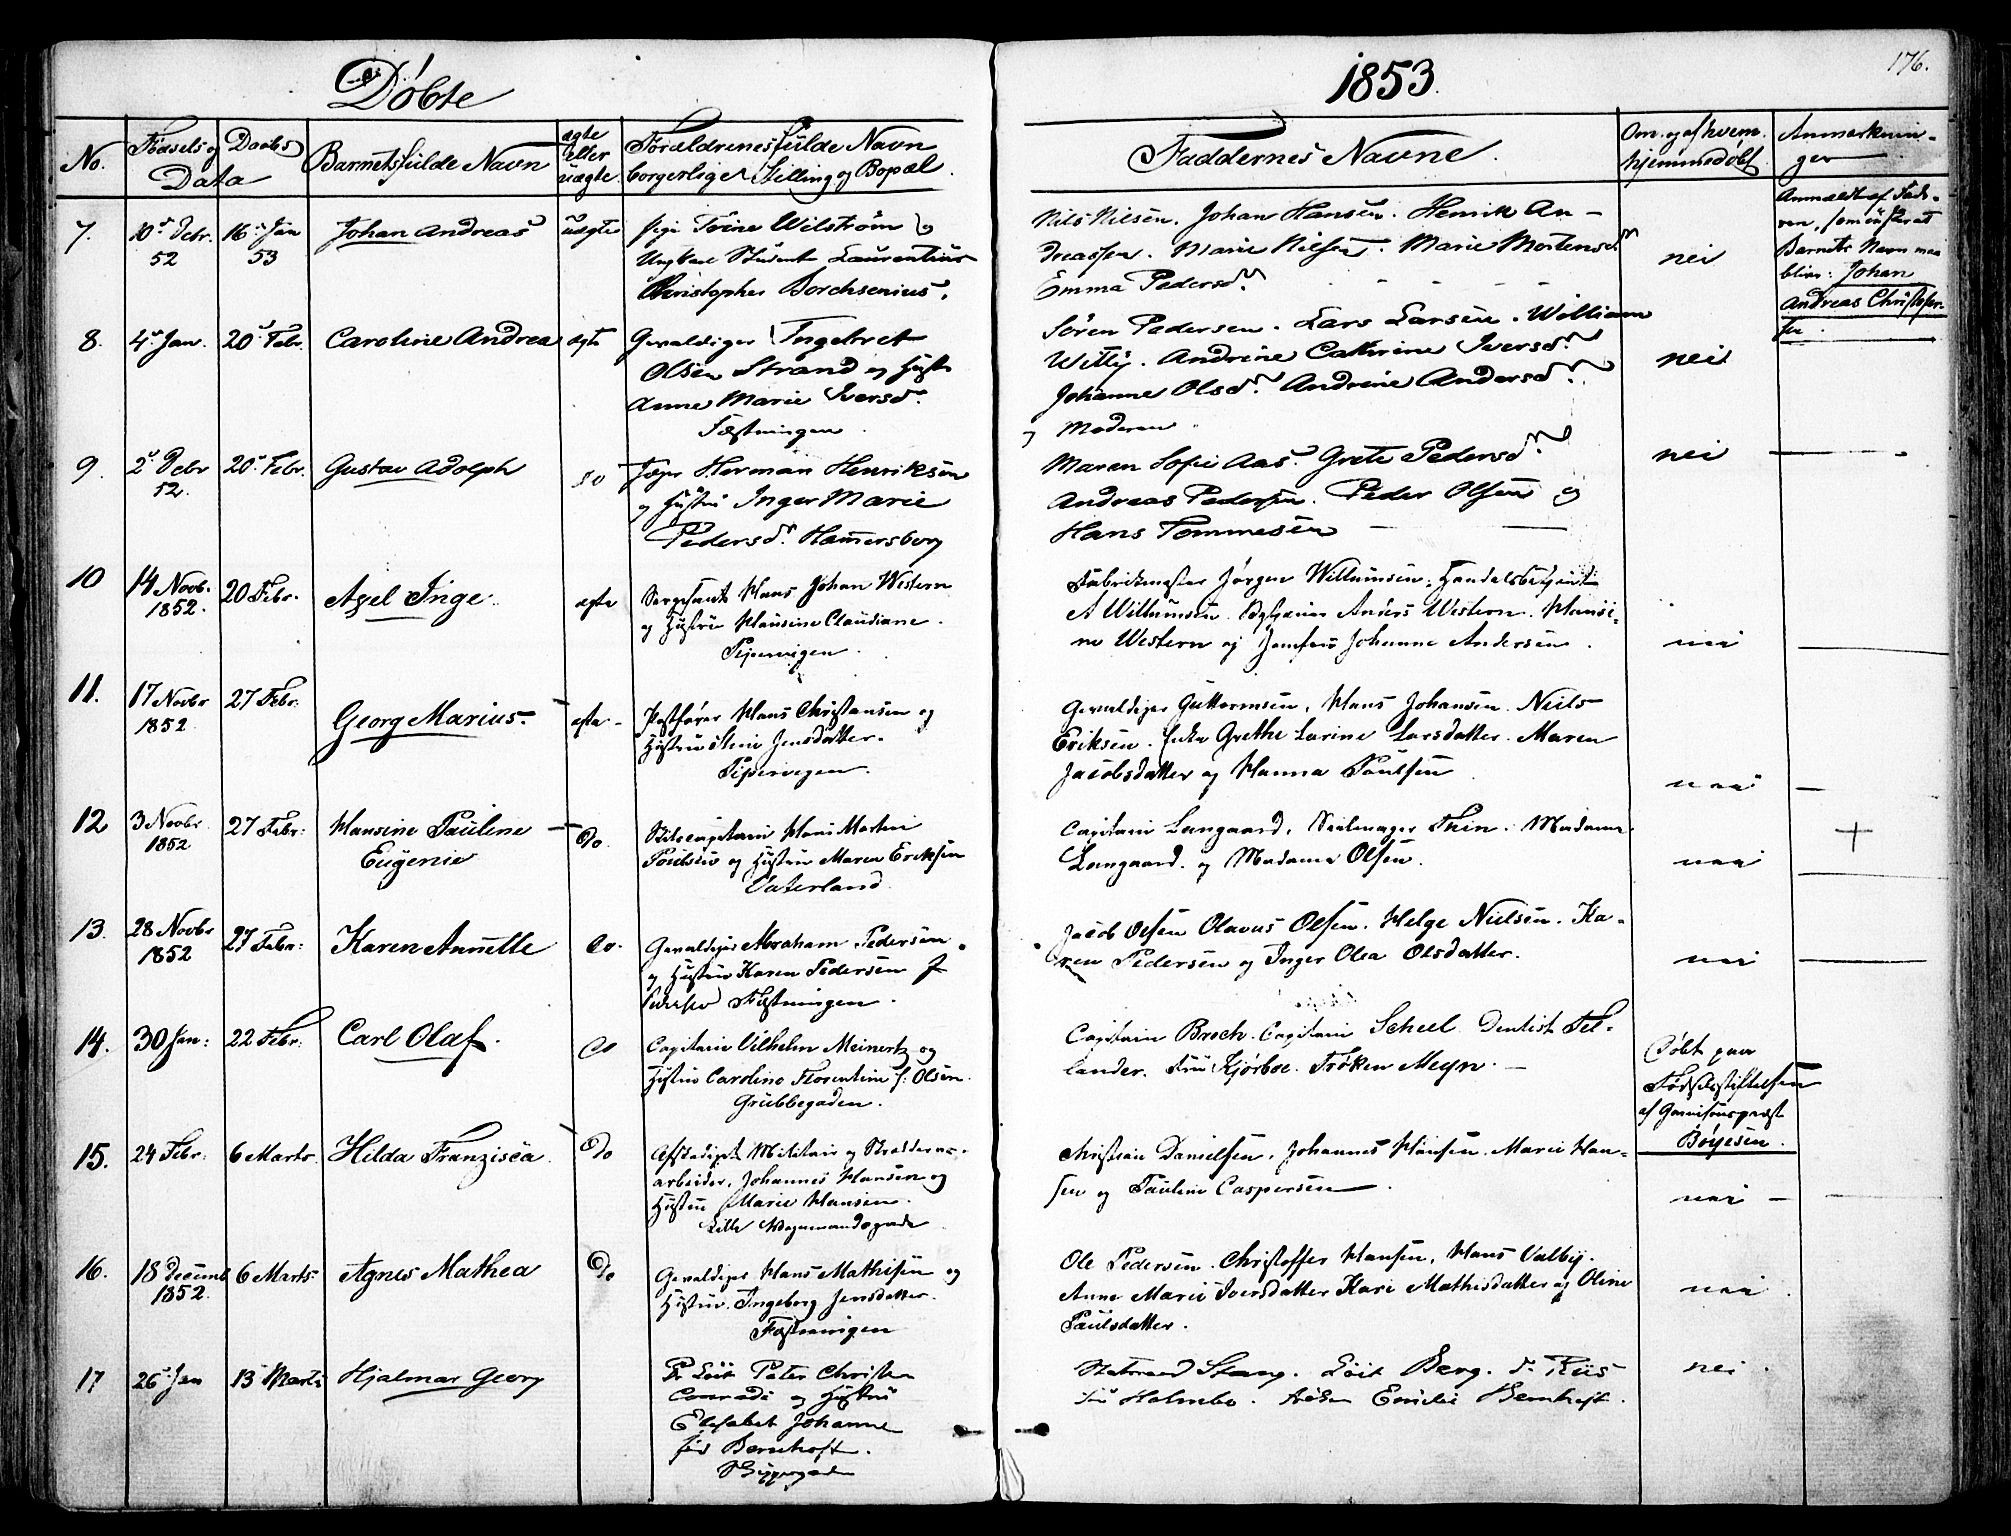 Døbte
1853.
176.
No.
Fødsels og Daabs
Data
Barnets fulde Navn
ægte
eller
uægte
Forældrenes fulde Navn
borgerlige Stilling og Bopæl.
Faddernes Navne.
Om og af hvem
hjemmedøbt
Anmærknin-
ger
7.
10d Debr.
52
16d Jan
53
Johan Andreas
uægte
Pige Trine Wilström og
Ungkarl Student Laurentius
Christopher Borchsenius.
Nils Nilsen. Johan Hansen. Henrik An-
dreassen. Marie Nilsen. Marie Mortensd.
Emma Pedersd.
nei
Anmeldt af Fade-
ren, som
Barnets Navn maa
blive: Johan
Andreas Christopher-
sen.
8.
4d Jan.
20d Febr.
Caroline Andrea
ægte
Gevaldiger Ingebret
Olsen Strand og Hustr.
Anne Marie Iversd.
Fæstningen.
Sören Pedersen. Lars Larsen. William
Witty. Andrine Cathrine Iversd.
Johanne Olsd. Andrine Andersd.
og Moderen.
nei
9.
2d Debr
52.
20d Febr.
Gustav Adolph
do
Herman Henriksen
og Hustru Inger Marie
Pedersd. Hammersborg
Maren Sofie Aas. Grete Pedersd.
Andreas Pedersen. Peder Olsen og
Hans Tommesen
nei
10
14 Novbr.
1852.
20 Febr.
Axel Inge.
ægte
Sergeant Hans Johan Western
og Hustru Hansine Claudiane.
Pipervigen.
Fabrikmester Jørgen Willumsen. Handelsbetjent
A Willumsen. Anders Western. Hansi-
ne Western og Jomfru Johanne Andersen.
nei
11.
17 Novbr
1852
27 Febr.
Georg Marius.
ægte
Postfører Hans Christiansen og
Hustru Stine Jensdatter.
Pipervigen.
Gevaldiger Guttormsen, Hans Johansen. Neils
Eriksen. Enke Grethe Larine Larsdatter. Maren
Jacobsdatter og Hanna Paulsen
nei
12
3 Novbr
1852
27 Febr:
Hansine Pauline
Eugenie
Do.
Skibscapitain Hans Martin
Poulsen og Hustru Maren Eriksen
Vaterland.
Capitain Langaard, Seilmager Thin. Madame
Langaard. og Madame Olsen.
nei
+
13.
28 Novbr
1852
27 Febr:
Karen Annette
Do.
Gevaldiger Abraham Pedersen
og Hustru Karen Pedersen f
Pedersen Fæstningen.
Jacob Olsen Olavus Olsen. Helge Nielsen. Ka-
ren Pedersen og Inger Olea Olsdatter.
nei
14.
30 Jan:
22 Febr:
Carl Olaf.
Do
Capitain Vilhelm Meinertz og
Hustru Caroline Florentine f: Olsen.
Grubbegaden.
Capitain Broch. Capitain Scheel. Dentist Fel-
lander. Fru Kjørboe. Frøken Meyn.
Døbt paa
Fødselsstiftelsen
af Garnisonspræst
Bøyesen.
15.
24 Febr:
6 Marts.
Hilda Franzisca
Do
Afskediget Militair og Skrædder-
arbeider, Johannes Hansen og
Hustru Marie Hansen.
Lille Vognmandsgade
Christian Danielsen, Johannes Hansen. Marie Han-
sen og Pauline Caspersen.
nei
16.
18 Decembr
1852.
6 Marts.
Agnes Mathea
Do
Gevaldiger Hans Mathisen og
Hustru. Ingeborg Jensdatter.
Fæstningen
Ole Pedersen. Christoffer Hansen, Hans Valby.
Anne Marie Iversdatter Kari Mathisdatter og Oline
Paulsdatter.
nei
17
26 Jan
13 Marts
Hjalmar Georg
Pr Löit Peter Christen
Conradi og Hustru
Elisabet Johanne
född Bernhoft.
Skippergaden
Statsraad Stang. Löit Berg. Riis
Fru Holmebo. Frøken Emilie Bernhoft.
nei